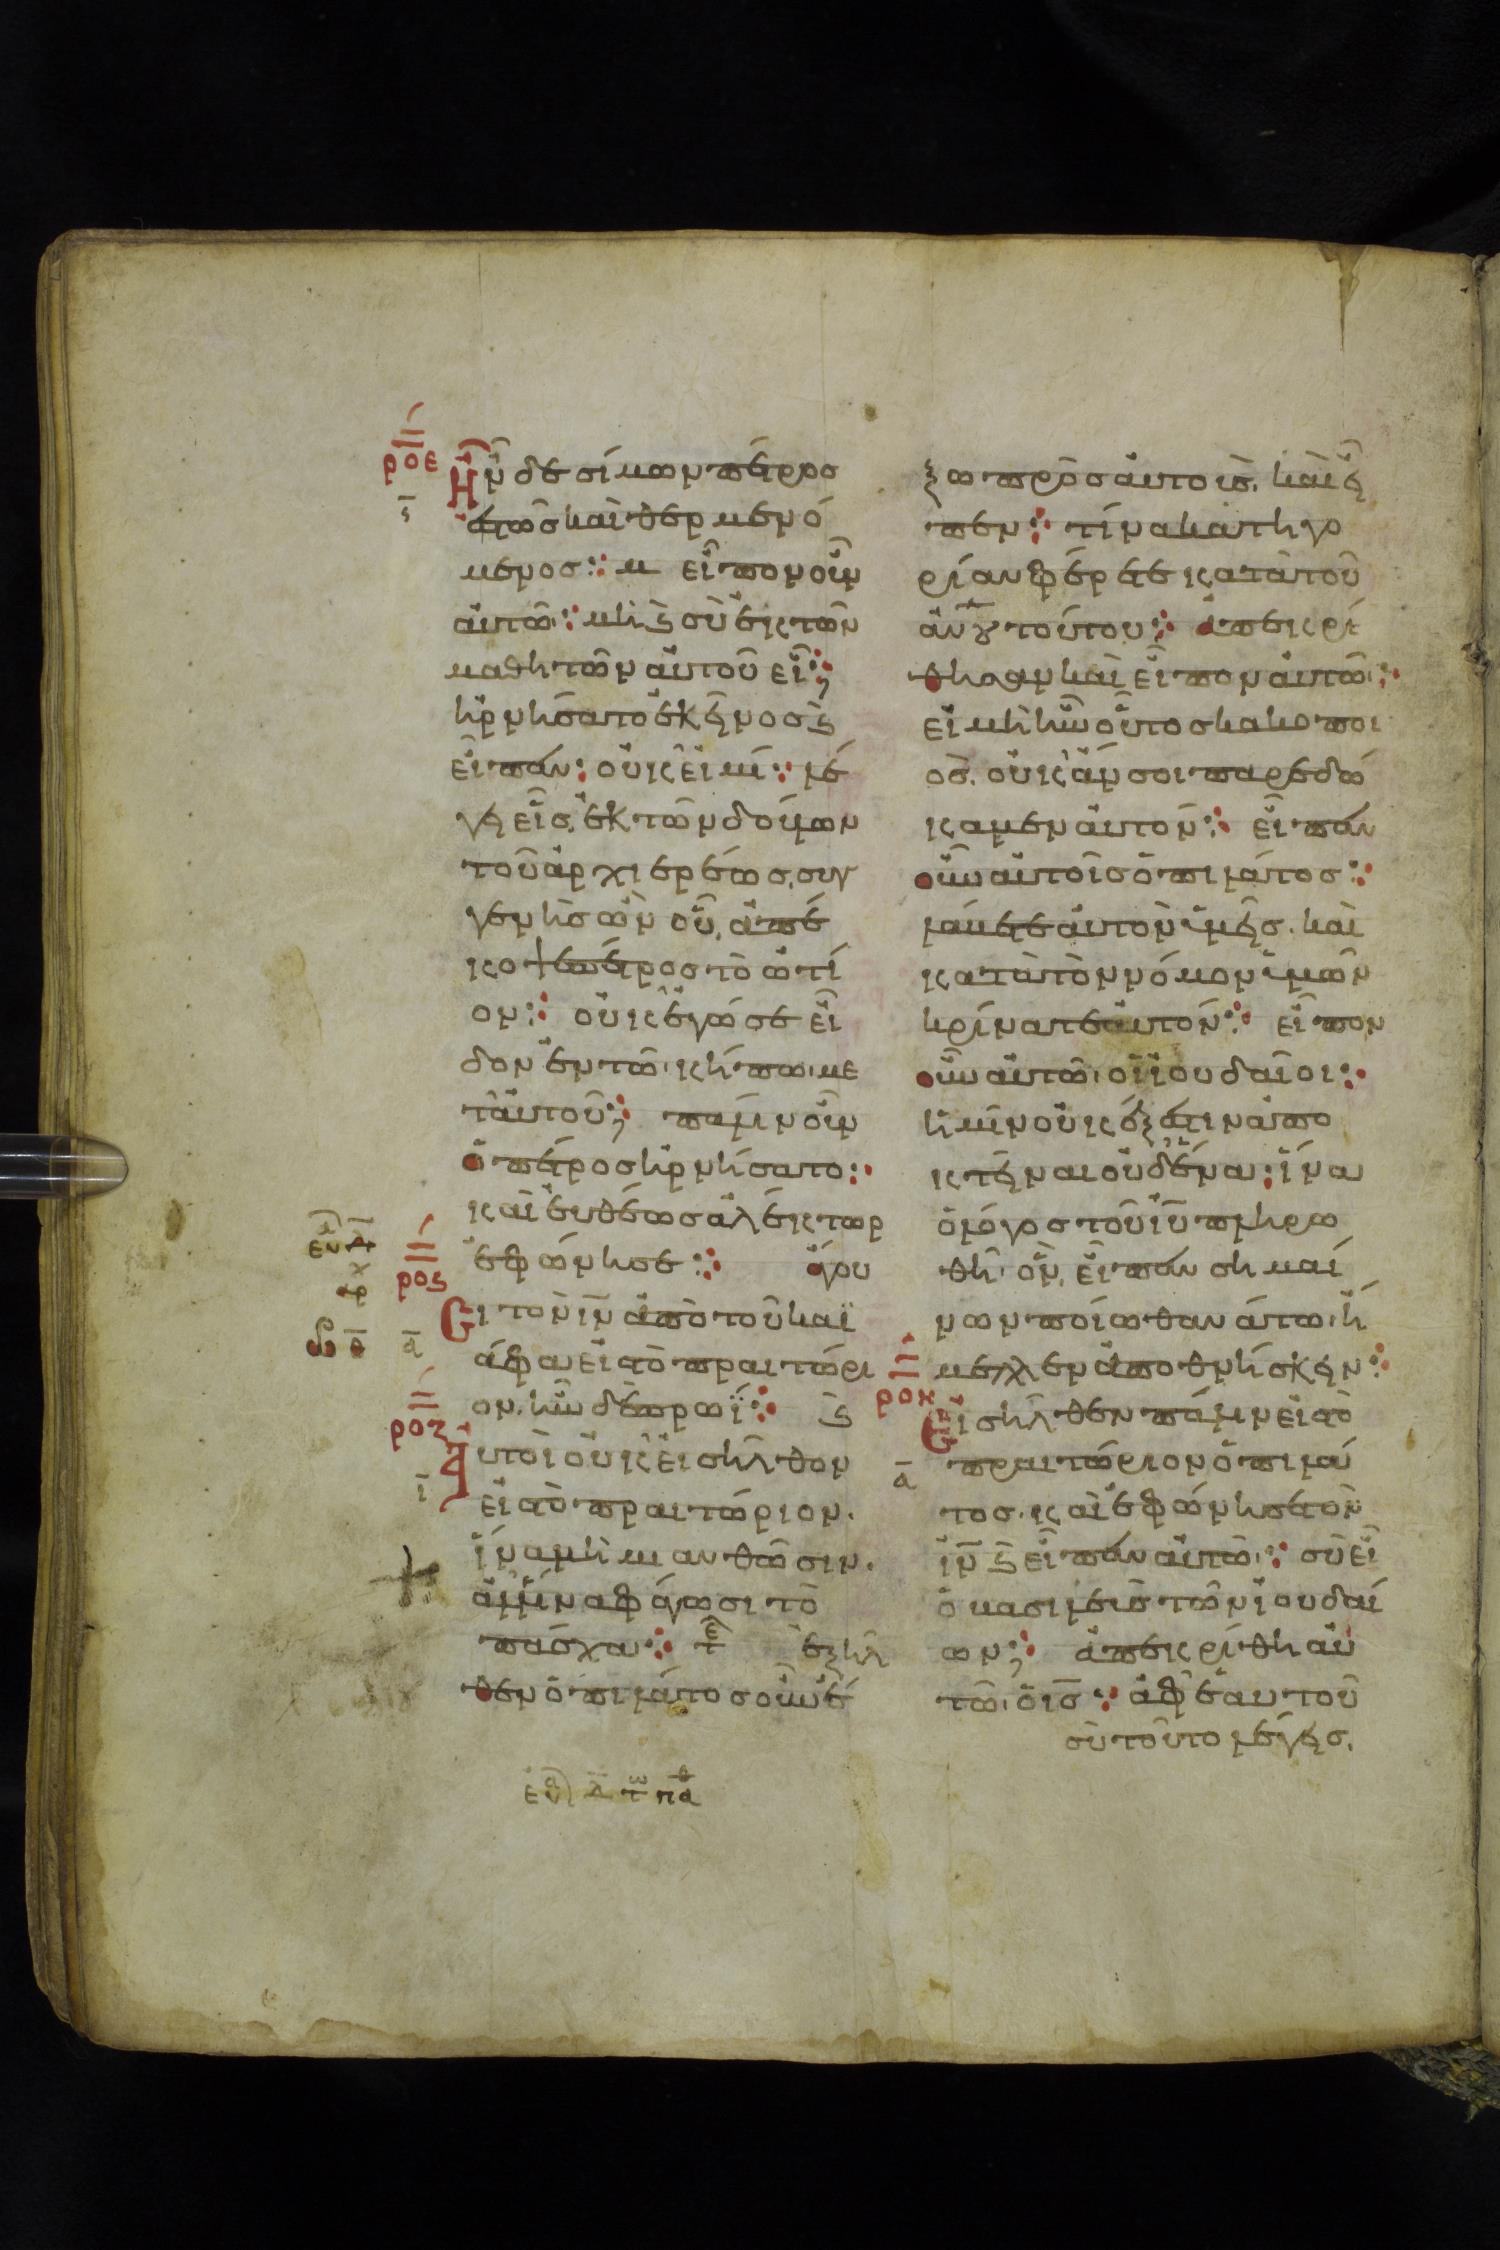 ροε
Ἦν δὲ σίμων πέτρος
ϛ
ἑστὼς καὶ θερμενό
μενος· εἶπον οὖν
αὐτῶ· μὴ ϗ σὺ ἐκ τῶν
μαθητῶν αὐτοῦ εἶ;
ἠρνήσατο ἐκεῖνος ϗ
εἶπεν· οὐκ εἰμί· λέ
γει εἷς ἐκ τῶν δούλων
τοῦ ἀρχιερέως, συγ
γενὴς ὢν οὗ, ἀπέ
κοψε πέτρος τὸ ὠτί
ον· οὐκ ἐγώ σε εἶ
δον ἐν τῶ κήπω με
τ' αὐτοῦ; πάλιν οὖν
ὁ πέτρος ἠρνήσατο·
καὶ εὐθέως ἀλέκτωρ
ἐφώνησε· ἄγου
ροϛ
σι τὸν ιν ἀπὸ τοῦ καϊ
ά
άφα εἰς τὸ πραιτώρι
ον. ἦν δὲ πρωΐ· ϗ
ροζ
αὐτοὶ οὐκ εἰσῆλθον
ι
εἰς τὸ πραιτώριον.
ἵνα μὴ μιανθῶσιν.
ἀλλ' ἵνα φάγωσι τὸ
πάσχα· ἐξῆλ
θεν ὁ πιλάτος οὖν ἔ
ξω πρὸς αὐτούς. καὶ εἶ
πεν· τίνα κατηγο
ρίαν φέρετε κατὰ τοῦ
ἀνου τούτου· ἀπεκρί
θησαν καὶ εἶπον αὐτῶ·
εἰ μὴ ἦν οὗτος κακοποι
ός. οὐκ ἄν σοι παρεδώ
καμεν αὐτόν· εἶπεν
οὖν αὐτοῖς ὁ πιλάτος·
λάβετε αὐτὸν ὑμεῖς. καὶ
κατὰ τὸν νόμον ὑμῶν
κρίνατε αὐτόν· εἶπον
οὖν αὐτῶ οἱ ἰουδαῖοι·
ἡμῖν οὐκ ἔξεστιν ἀπο
κτεῖναι οὐδένα· ἵνα
ὁ λόγος τοῦ ιυ πληρω
θῆ ὃν, εἶπεν σημαί
νων ποίω θανάτω ἤ
μελλεν ἀποθνήσκειν·
ροη
Εἰσῆλθεν πάλιν εἰς τὸ
α
πραιτώριον ὁ πιλά
τος. καὶ ἐφώνησε τὸν
ιν ϗ εἶπεν αὐτῶ· σὺ εἶ
ὁ βασιλεὺς τῶν ἰουδαί
ων; ἀπεκρίθη αὐ
τῶ ὁ ις· ἀφ' ἑαυτοῦ
σὺ τοῦτο λέγεις.